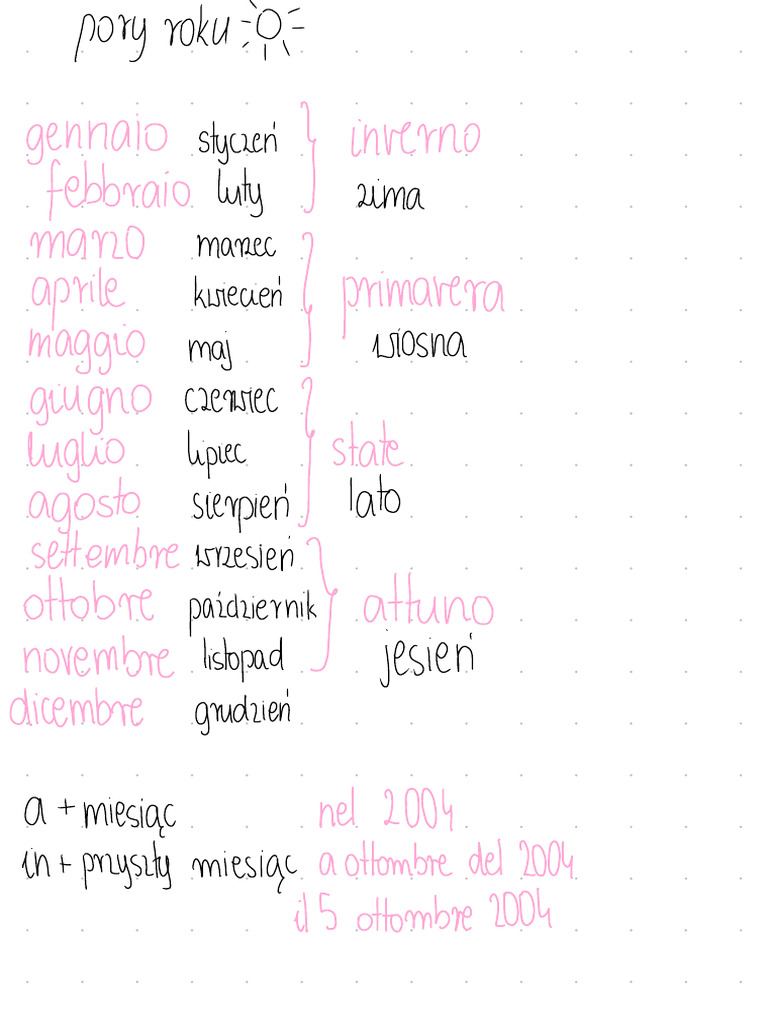 pory roku
gennaio styczeń inverno
febbraio luty zima
marzo marzec
aprile kwiecień primavera
maggio maj wiosna
giugno czerwiec
luglio lipiec state
agosto sierpień lato
settembre wrzesień
ottobre październik attuno
novembre listopad jesień
dicembre grudzień
a + miesiąc nel 2004
in + przyszły miesiąc a ottombre del 2004
il 5 ottombre 2004